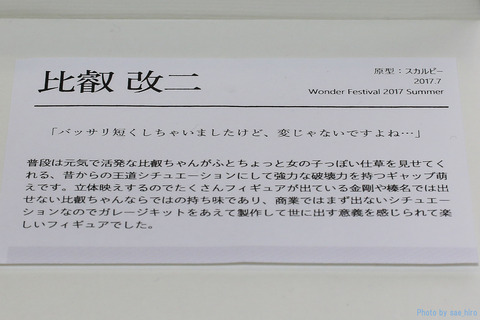 比叡 改二
原型：スカルピー
2017.7
Wonder Festival 2017 Summer
「バッサリ短くしちゃいましたけど、変じゃないですよね…」
普段は元気で活発な比叡ちゃんがふとちょっと女の子っぽい仕草を見せてく
れる、昔からの王道シチュエーションにして強力な破壊力を持つギャップ萌
えです。立体映えするのでたくさんフィギュアが出ている金剛や榛名では出
せない比叡ちゃんならではの持ち味であり、商業ではまず出ないシチュエー
ションなのでガレージキットをあえて製作して世に出す意義を感じられて楽
しいフィギュアでした。
Photo by sae hiro